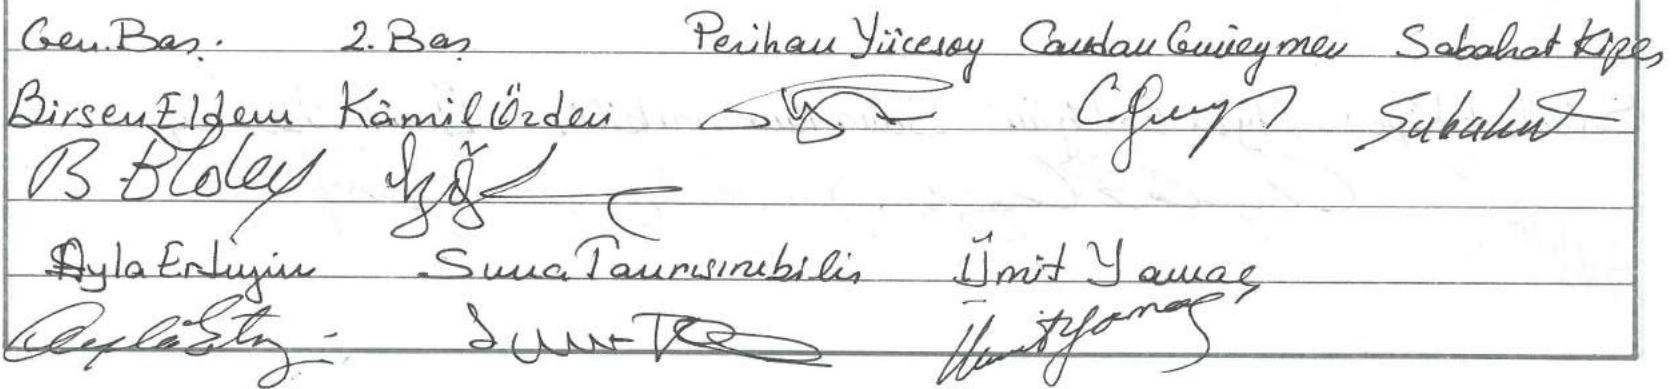 Gen. Baş. 2. Baş Perihan Yücesoy Candan Güneymen Sabahat Kipeş
Birsen Eldem Kâmil Özden Sabahat
Ayla Ertuğin Suna Tanrısınıbiliş Ümit Yamaç
Ümit Yamaç